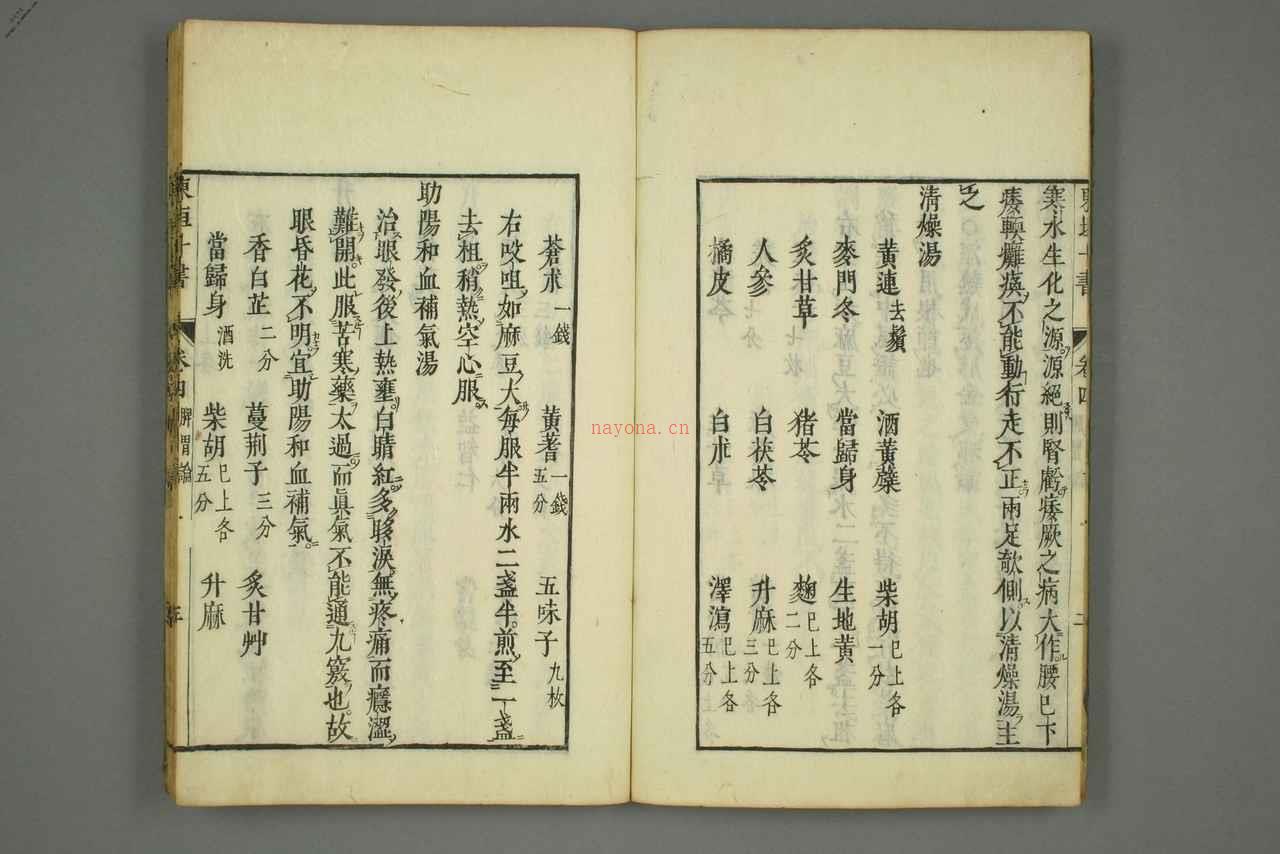 東垣十書 卷四
寒水生化之源源絕則腎虧痿厥之病大作腰已下
痿軟癱瘓不能動行走不正兩足欹側以清燥湯主
之
清燥湯
黃連 去鬚 酒黃蘗 柴胡 已上各一分
麥門冬 當歸身 生地黃
炙甘草 猪苓 麴 已上各二分
人參 白茯苓 升麻 已上各三分
橘皮 白朮 澤瀉 已上各五分
蒼朮 一錢 黃蓍 一錢五分 五味子 九枚
右㕮咀如麻豆大每服半兩水二盞半煎至一盞
去柤稍熱空心服
助陽和血補氣湯
治眼發後上熱壅白睛紅多眵淚無疼痛而癮澀
難開此服苦寒藥太過而眞氣不能通九竅也故
眼昏花不明宜助陽和血補氣
香白芷 二分 蔓荊子 三分 炙甘艸
當歸身 酒洗 柴胡 已上各五分 升麻
東垣十書 卷四 脾胃論
nayona.cn